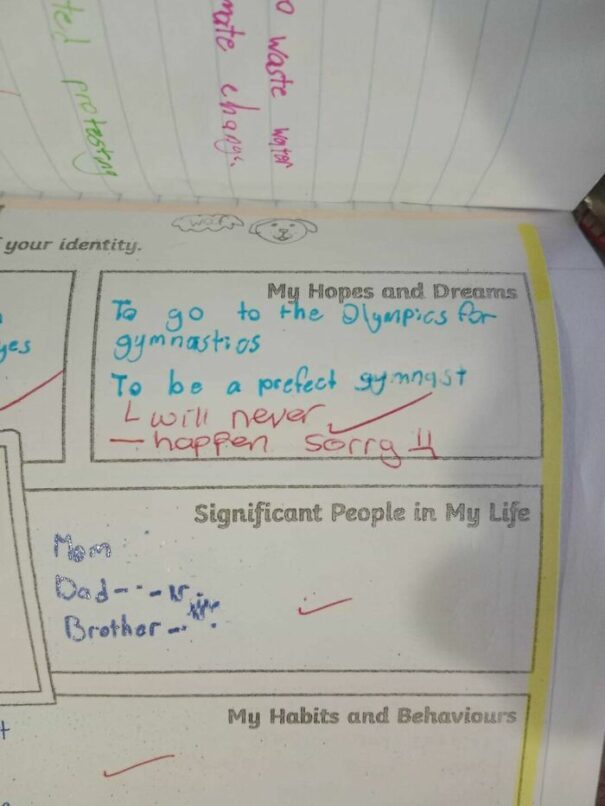 o waste water
mate change.
ted protesting
woof
your identity.
yes
My Hopes and Dreams
To go to the Olympics for
gymnastics
To be a prefect gymnast
will never
happen sorry !!
Significant People in My Life
Mom
Dad
Brother
My Habits and Behaviours